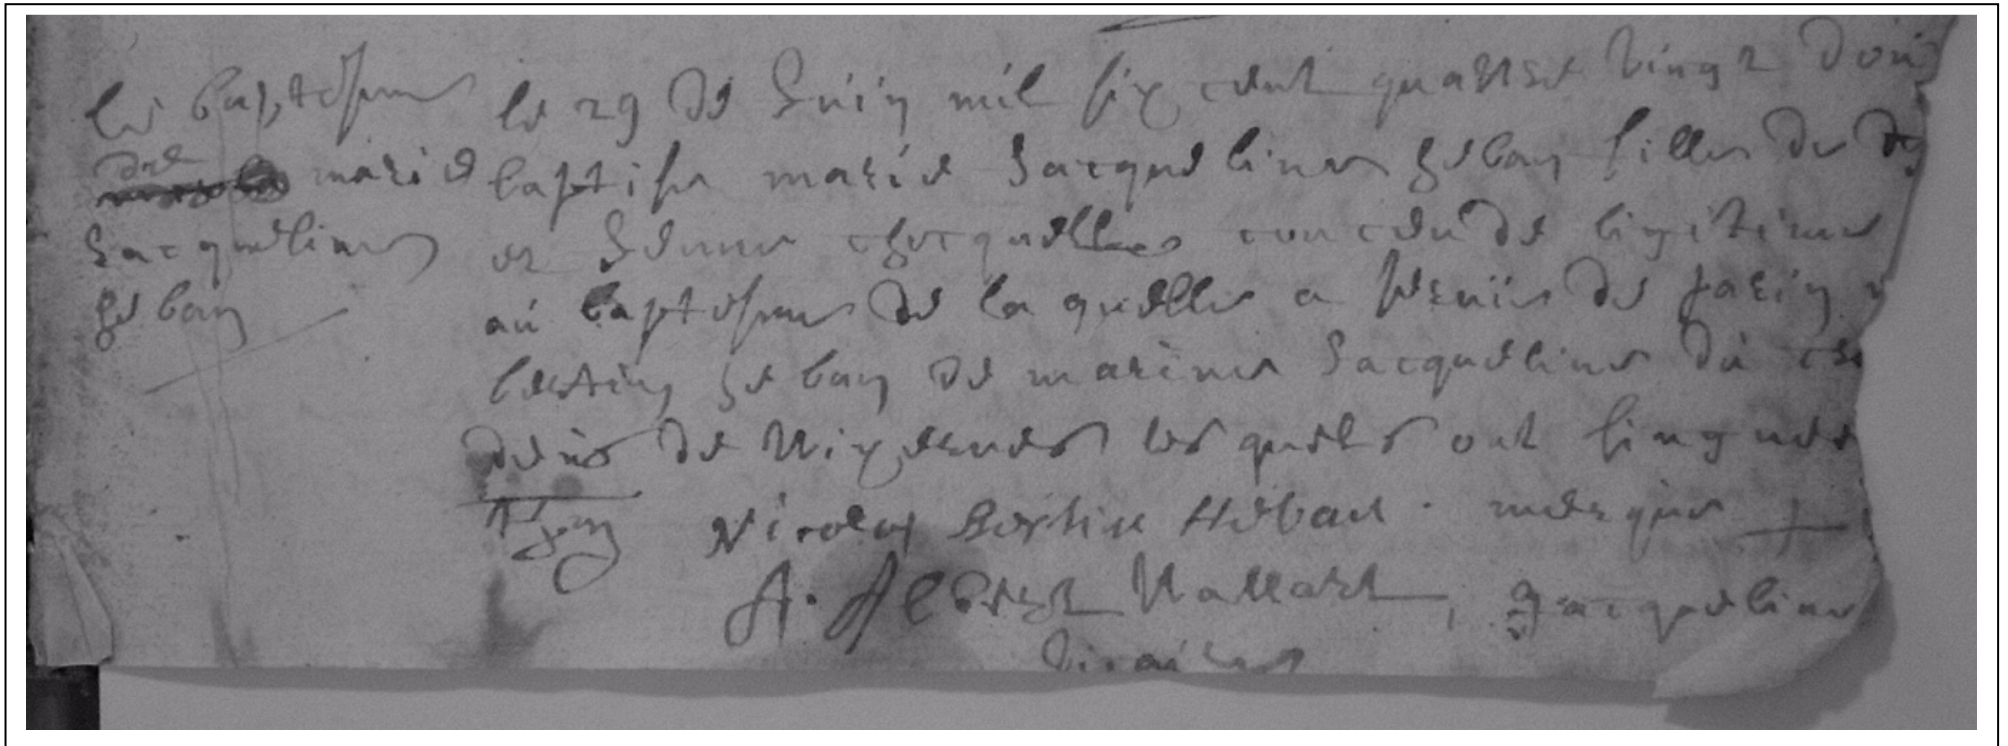 le baptesme
de marie
Jacqueline
heban
le 29 de Juin mil six cent quattre vingt dou
baptise marie Jacqueline heban fille de
et Jenne choequelle coucende ligitime
au baptesme de la quelle a servie de parin
bertin heban de marine Jacqueline du
de Nixernes les quels ont singnes
Nicolas Bertin Heban. merque +
A. Albert Vallart, Jacqueline
vicaire